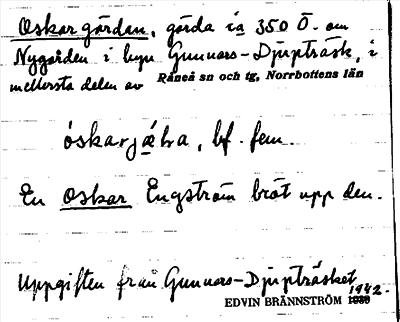 Oskargården, gårda ca 350 Ö. om
Nygården i byn Gunnars-Djupträsk, i
mellersta delen av Råneå sn och tg, Norrbottens län
óskarjǽḷra, bf. fem.
En Oskar Engström bröt upp den.
Uppgiften från Gunnars-Djupträsket
1942.
EDVIN BRÄNNSTRÖM 1939